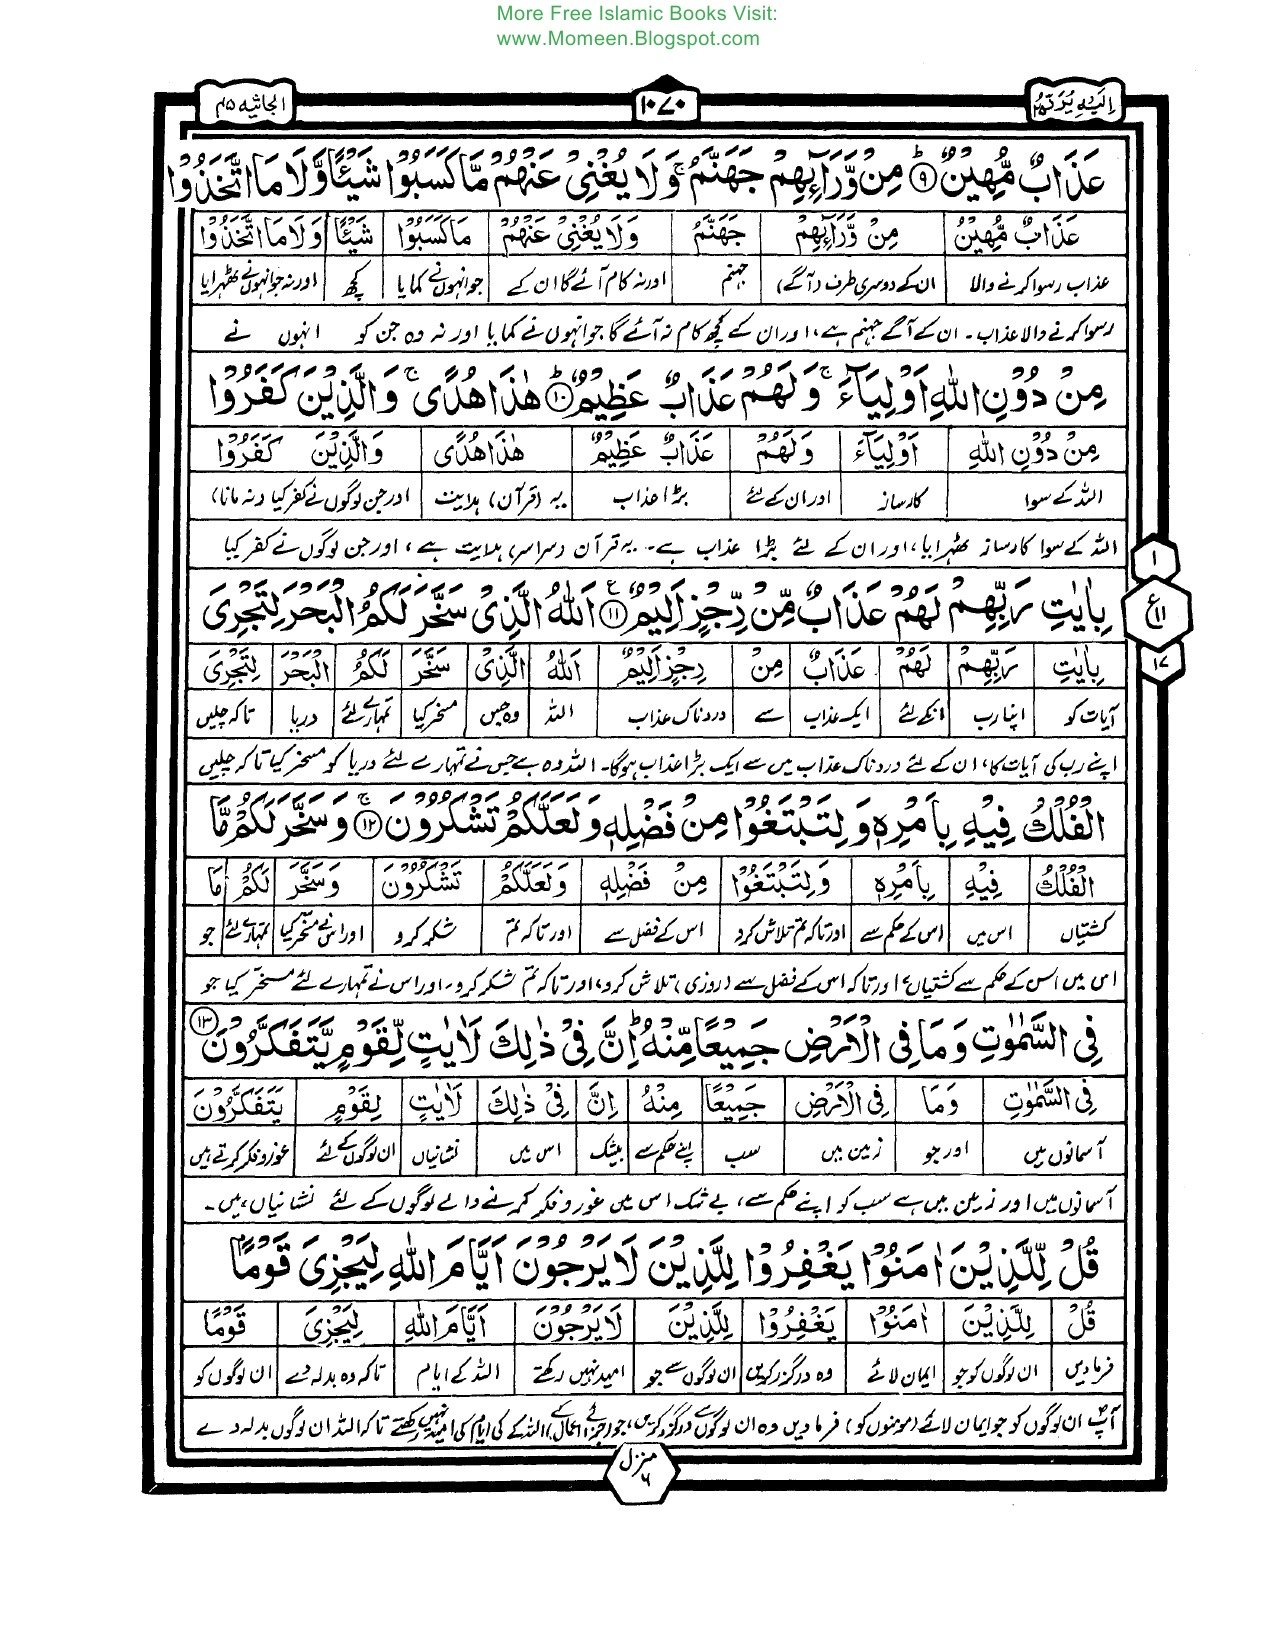 More Free Islamic Books Visit:
www.Momeen.Blogspot.com
اِلَیْهِ یُرَدُّ
۱۰۷۰
الجاثیه ۴۵
عَذَابٌ مُّهِیْنٌ ۹ مِنْ وَّرَآىِٕهِمْ جَهَنَّمُ ۚ وَلَا یُغْنِیْ عَنْهُمْ مَّا كَسَبُوْا شَیْـًٔا وَّلَا مَا اتَّخَذُوْا
عَذَابٌ مُّهِیْنٌ مِنْ وَّرَآىِٕهِمْ جَهَنَّمُ وَلَا یُغْنِیْ عَنْهُمْ مَا كَسَبُوْا شَیْـًٔا وَلَا مَا اتَّخَذُوْا
عذاب رسوا کرنے والا ان کے دوسری طرف (آگے) جہنم اور نہ کام آئے گا ان کے جو انہوں نے کمایا کچھ اور نہ جو انہوں نے ٹھہرایا
رسوا کرنے والا عذاب۔ ان کے آگے جہنم ہے، اور ان کے کچھ کام نہ آئے گا جو انہوں نے کمایا اور نہ وہ جن کو انہوں نے
مِنْ دُوْنِ اللّٰهِ اَوْلِیَآءَ ۚ وَلَهُمْ عَذَابٌ عَظِیْمٌ ۱۰ هٰذَا هُدًی ۚ وَالَّذِیْنَ كَفَرُوْا
مِنْ دُوْنِ اللّٰهِ اَوْلِیَآءَ وَلَهُمْ عَذَابٌ عَظِیْمٌ هٰذَا هُدًی وَالَّذِیْنَ كَفَرُوْا
اللہ کے سوا کارساز اور ان کے لئے بڑا عذاب یہ (قرآن) ہدایت اور جن لوگوں نے کفر کیا (نہ مانا)
اللہ کے سوا کارساز ٹھہرایا، اور ان کے لئے بڑا عذاب ہے۔ یہ قرآن (سراسر) ہدایت ہے، اور جن لوگوں نے کفر کیا
بِاٰیٰتِ رَبِّهِمْ لَهُمْ عَذَابٌ مِّنْ رِّجْزٍ اَلِیْمٌ ۱۱ اَللّٰهُ الَّذِیْ سَخَّرَ لَكُمُ الْبَحْرَ لِتَجْرِیَ
بِاٰیٰتِ رَبِّهِمْ لَهُمْ عَذَابٌ مِنْ رِجْزٍ اَلِیْمٌ اَللّٰهُ الَّذِیْ سَخَّرَ لَكُمُ الْبَحْرَ لِتَجْرِیَ
آیات کو اپنا رب انکے لئے ایک عذاب سے دردناک عذاب اللہ وہ جس مسخر کیا تمہارے لئے دریا تاکہ چلیں
اپنے رب کی آیات کا، ان کے لئے دردناک عذاب میں سے ایک بڑا عذاب ہوگا۔ اللہ وہ ہے جس نے تمہارے لئے دریا کو مسخر کیا تاکہ چلیں
الْفُلْكُ فِیْهِ بِاَمْرِهٖ وَلِتَبْتَغُوْا مِنْ فَضْلِهٖ وَلَعَلَّكُمْ تَشْكُرُوْنَ ۚ ۱۲ وَسَخَّرَ لَكُمْ مَّا
الْفُلْكُ فِیْهِ بِاَمْرِهٖ وَلِتَبْتَغُوْا مِنْ فَضْلِهٖ وَلَعَلَّكُمْ تَشْكُرُوْنَ وَسَخَّرَ لَكُمْ مَا
کشتیاں اس میں اس کے حکم سے اور تاکہ تم تلاش کرو اس کے فضل سے اور تاکہ تم شکر کرو اور اس نے مسخر کیا تمہارے لئے جو
اس میں اس کے حکم سے کشتیاں، اور تاکہ اس کے فضل سے (روزی) تلاش کرو، اور تاکہ تم شکر کرو، اور اس نے تمہارے لئے مسخر کیا جو
فِی السَّمٰوٰتِ وَمَا فِی الْاَرْضِ جَمِیْعًا مِّنْهُ ؕ اِنَّ فِیْ ذٰلِكَ لَاٰیٰتٍ لِّقَوْمٍ یَّتَفَكَّرُوْنَ ۱۳
فِی السَّمٰوٰتِ وَمَا فِی الْاَرْضِ جَمِیْعًا مِنْهُ اِنَّ فِیْ ذٰلِكَ لَاٰیٰتٍ لِقَوْمٍ یَتَفَكَّرُوْنَ
آسمانوں میں اور جو زمین میں سب اپنے حکم سے بیشک اس میں نشانیاں ان لوگوں کے لئے غور و فکر کرتے ہیں
آسمانوں میں اور زمین میں ہے سب کو اپنے حکم سے، بے شک اس میں غور و فکر کرنے والے لوگوں کے لئے نشانیاں ہیں۔
قُلْ لِّلَّذِیْنَ اٰمَنُوْا یَغْفِرُوْا لِلَّذِیْنَ لَا یَرْجُوْنَ اَیَّامَ اللّٰهِ لِیَجْزِیَ قَوْمًۢا
قُلْ لِلَّذِیْنَ اٰمَنُوْا یَغْفِرُوْا لِلَّذِیْنَ لَا یَرْجُوْنَ اَیَّامَ اللّٰهِ لِیَجْزِیَ قَوْمًا
فرمادیں ان لوگوں کو جو ایمان لائے وہ درگزر کریں ان لوگوں سے جو امید نہیں رکھتے اللہ کے ایام تاکہ وہ بدلہ دے ان لوگوں کو
آپ ان لوگوں کو جو ایمان لائے (مومنوں کو) فرمادیں وہ ان لوگوں سے درگزر کریں، جو (جزائے اعمال کے) اللہ کے ایام کی امید نہیں رکھتے تاکہ اللہ ان لوگوں بدلہ دے
۱
ع ۱۱
۱۷
منزل ۶